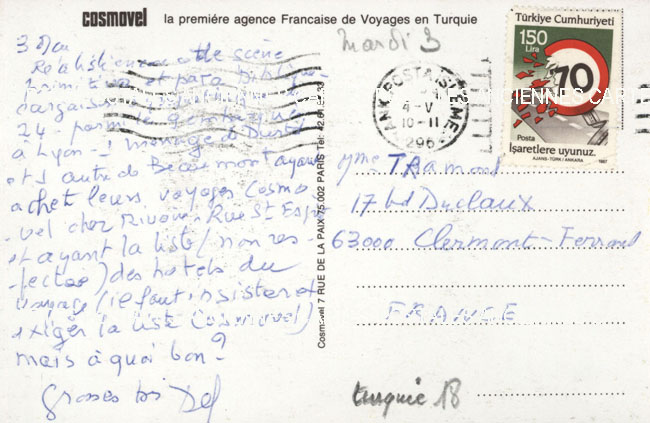 cosmovel la première agence Francaise de Voyages en Turquie
3 Mai
Réaliste cette scène
primitive et para biblique
24 - parmi
à Lyon - 1 ménage
et 1 autre de Beaumont ayant
acheté leurs voyages Cosmo
vel chez Rivoire - Rue St Esprit
et ayant la liste (non res
pectée) des hotels du
voyage (il faut insister et
exiger la liste Cosmovel)
mais à quoi bon?
grosses bis
Cosmovel 7 RUE DE LA PAIX 75.002 PARIS Tel: 42.61.
Mardi 3
POSTA İŞLEME
4-V
10-11
296
Türkiye Cumhuriyeti
150
Lira
70
Posta
İşaretlere uyunuz.
AJANS-TÜRK / ANKARA 1987
Mme TRamond
17 bd Duclaux
63000 Clermont-Ferrand
FRANCE
turquie 18